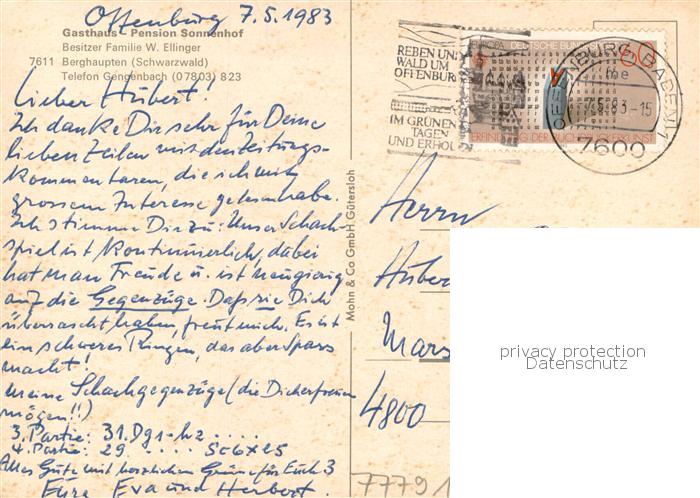 Offenburg 7.5.1983
Gasthaus - Pension Sonnenhof
Besitzer Familie W. Ellinger
7611 Berghaupten (Schwarzwald)
Telefon Gengenbach (07803) 823
Lieber Hubert!
Ich danke Dir sehr für Deine
lieben Zeilen mit den Zeitungs-
kommentaren, die ich mit
grossem Interesse gelesen habe.
Ich stimme Dir zu: Unser Schach-
spiel ist kontinuierlich, dabei
hat man Freude u. ist neugierig
auf die Gegenzüge. Daß sie Dich
überrascht haben, freut mich. Es ist
ein schweres Ringen, das aber Spass
macht!
Meine Schachgegenzüge (die Dich erfreuen
mögen!!)
3. Partie: 31. Dg1-h2 ....
4. Partie: 29. .... Sc6xe5
Alles Gute mit herzlichen Grüssen für Euch 3
Eure Eva und Herbert.
Mohn & Co GmbH Gütersloh
REBEN UND
WALD UM
OFFENBURG
IM GRÜNEN
TAGEN
UND ERHOL
EUROPA DEUTSCHE BUNDESPOST
60
ERFINDUNG DER BUCHDRUCKERKUNST
OFFENBURG, BADEN 1
me
-7.5.83-15
7600
Herrn
Huber
Mars
4800
privacy protection
Datenschutz
77791